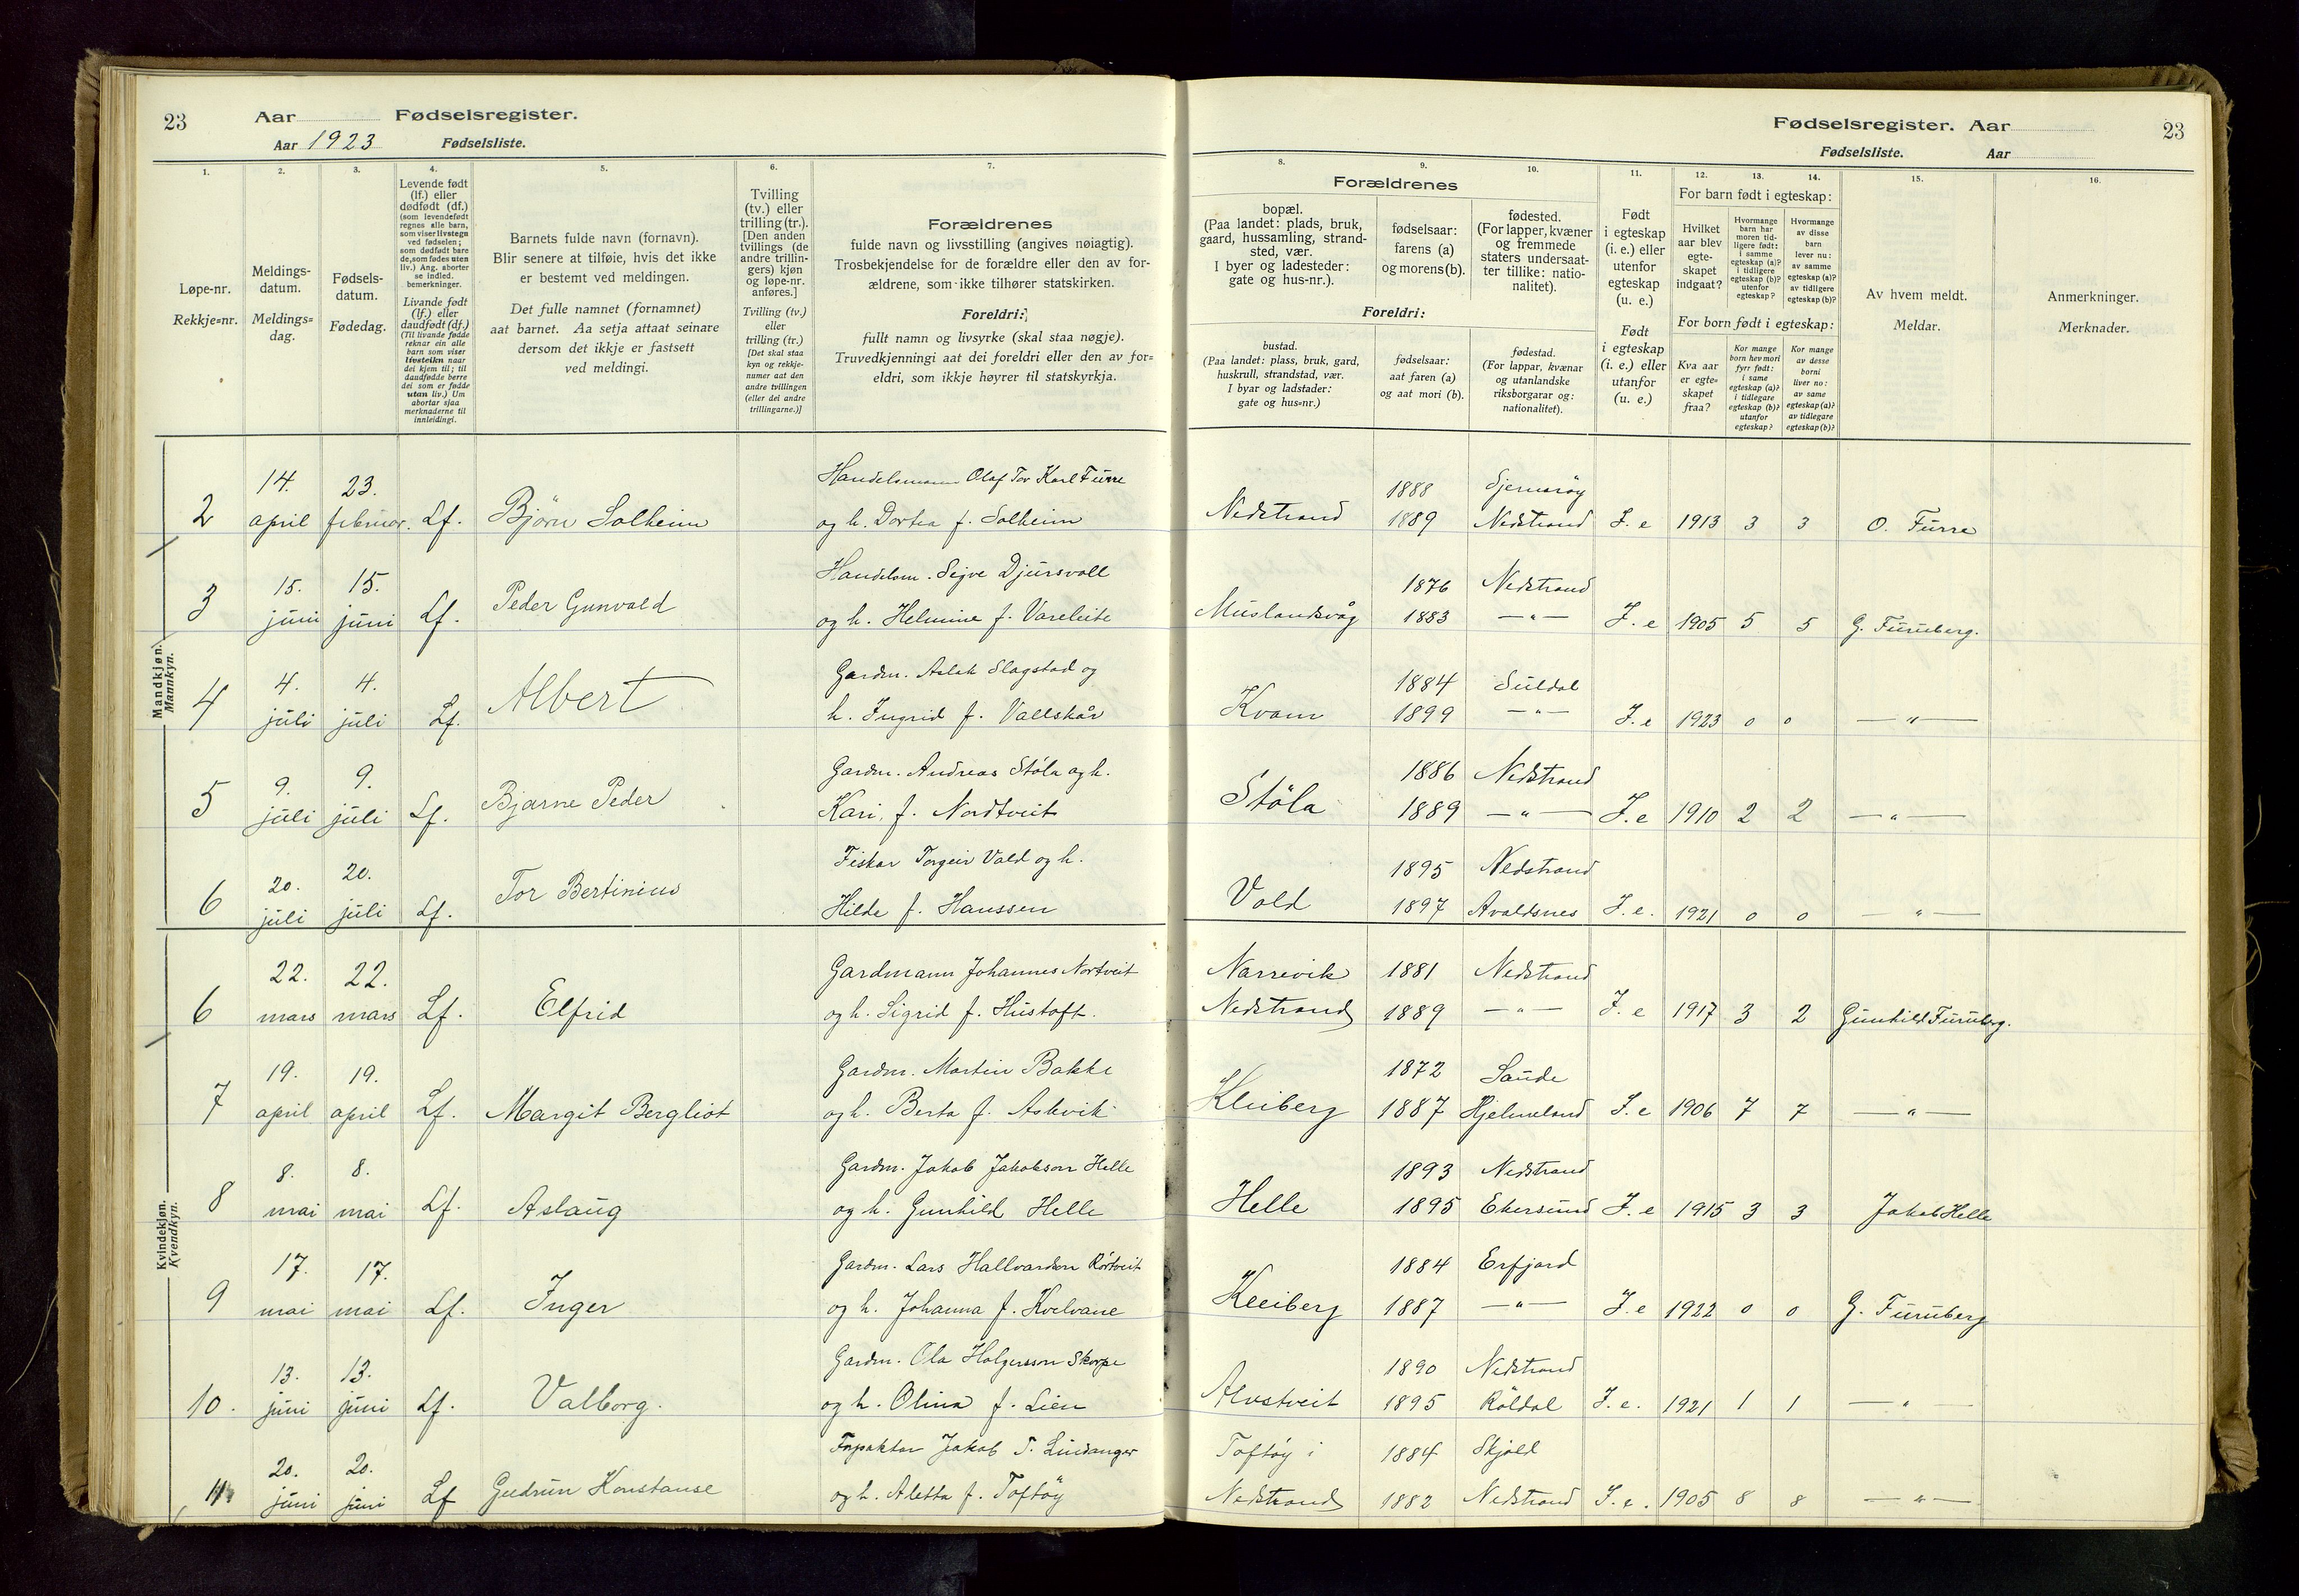 23 Aar Fødselsregister.
Aar 1923 Fødselsliste.
1. 2. 3. 4. 5. 6. 7.
Løpe-nr.
Rekkje=nr.
Meldings-
datum.
Meldings=
dag.
Fødsels-
datum.
Fødedag.
Levende født
(lf.) eller
dødfødt (df.)
(som levendefødt
regnes alle barn,
som viser livstegn
ved fødselen;
som dødfødt bare
de, som fødes uten
liv.) Ang. aborter
se indled.
bemerkninger.
Livande født
(lf.) eller
daudfødt (df.)
(Til livande fødde
reknar ein alle
barn som viser
livsteikn naar
dei kjem til; til
daudfødde berre
dei som er fødde
utan liv.) Um
abortar sjaa
merknaderne til
innleidingi.
Barnets fulde navn (fornavn).
Blir senere at tilføie, hvis det ikke
er bestemt ved meldingen.
Det fulle namnet (fornamnet)
aat barnet. Aa setja attaat seinare
dersom det ikkje er fastsett
ved meldingi.
Tvilling
(tv.) eller
trilling (tr.).
[Den anden
tvillings (de
andre trillin-
gers) kjøn
og løpe-nr.
anføres.]
Tvilling (tv.)
eller
trilling (tr.)
[Det skal staa
kyn og rekkje-
numer aat den
andre tvillingen
(eller dei andre
trillingarne.)]
Forældrenes
fulde navn og livsstilling (angives nøiagtig).
Trosbekjendelse for de forældre eller den av for-
ældrene, som ikke tilhører statskirken.
Foreldri:
fullt namn og livsyrke (skal staa nøgje).
Truvedkjenningi aat dei foreldri eller den av for=
eldri, som ikkje høyrer til statskyrkja.
Mandkjøn.
Mannkyn.
14. 23. Handelsmann Olaf Tor Karl Furre
2 april februar. Lf. Bjørn Solheim og h. Dortea f. Solheim
15. 15. Handelsm. Sejve Djursvoll
3 juni juni Lf. Peder Gunvald og h. Helmine f. Vareleite
4. 4. Gardm. Aslak Slagstad og
4 juli juli Lf. Albert h. Ingrid f. Vallskår
9. 9. Gardm. Andreas Støla og h.
5 juli juli Lf. Bjarne Peder Kari, f. Nordtveit
20. 20. Fiskar Torgeir Vold og h.
6 juli juli Lf. Tor Bertinius Hilde f. Hanssen
Kvindekjøn.
Kvendkyn.
22. 22. Gardmann Johannes Nortveit
6 mars mars Lf. Elfrid og h. Sigrid f. Hustoft.
19. 19. Gardm. Martin Bakke
7 april april Lf. Margit Bergliot og h. Berta f. Askvik
8. 8. Gardm. Jakob Jakobson Helle
8 mai mai Lf. Aslaug og h. Gunhild Helle
17. 17. Gardm. Lars Hallvardson Rørtveit
9 mai mai Lf. Inger og h. Johanna f. Kvelvane
13. 13. Gardm. Ola Holgersson Skorpe
10. juni juni Lf. Valborg. og h. Olina f. Lien
20. 20. Inspektør Jakob T. Lindanger
11 juni juni Lf Gudrun Konstanse og h. Aletta f. Toftøy
Fødselsregister. Aar 23
Fødselsliste. Aar
8. 9. 10. 11. 12. 13. 14. 15. 16.
Forældrenes
bopæl.
(Paa landet: plads, bruk,
gaard, hussamling, strand-
sted, vær.
I byer og ladesteder:
gate og hus-nr.).
fødselsaar:
farens (a)
og morens (b).
fødested.
(For lapper, kvæner
og fremmede
staters undersaat-
ter tillike: natio-
nalitet).
Foreldri:
bustad.
(Paa landet: plass, bruk, gard,
huskrull, strandstad, vær.
I byar og ladstader:
gate og hus=nr.)
fødselsaar:
aat faren (a)
og aat mori (b).
fødestad.
(For lappar, kvænar
og utanlandske
riksborgarar og:
nationalitet).
Født
i egteskap
(i. e.) eller
utenfor
egteskap
(u. e.)
Født
i egteskap
(i. e.) eller
utanfor
(u. e.)
For barn født i egteskap:
Hvilket
aar blev
egte-
skapet
indgaat?
Hvormange
barn har
moren tid-
ligere født:
i samme
egteskap (a)?
i tidligere
egteskap (b)?
utenfor
egteskap?
Hvormange
av disse
barn
lever nu:
av samme
egteskap (a)?
av tidligere
egteskap (b)?
For born født i egteskap:
Kva aar
er egte=
skapet
fraa?
Kor mange
born hev mori
fyrr født:
i same
egteskap (a)?
i tidlegare
egteskap (b)?
utanfor
egteskap?
Kor mange
av desse
borni
liver no:
av same
egteskap (a)?
av tidlegare
egteskap (b)?
Av hvem meldt.
Meldar.
Anmerkninger.
Merknader.
1888 Sjernarøy
Nedstrand 1889 Nedstrand I. e 1913 3 3 O. Furre
1876 Nedstrand
Muslandsvåg 1883 — " — I. e 1905 5 5 G. Furuberg.
1884 Suldal
Kvam 1899 — " — I. e 1923 0 0 — " —
1886 Nedstrand
Støla 1889 — " — I. e 1910 2 2 — " —
1895 Nedstrand
Vold 1897 Avaldsnes I. e. 1921 0 0 — " —
Narrevik 1881 Nedstrand
Nedstrand 1889 — " — I. e 1917 3 2 Gunhild Furuberg.
1872 Sande
Kleiberg 1887 Hjelmeland I. e 1906 7 7 — " —
1893 Nedstrand
Helle 1895 Ekersund I. e 1915 3 3 Jakob Helle
1884 Erfjord
Kleiberg 1887 — " — I. e 1922 0 0 G. Furuberg
1890 Nedstrand
Alvstveit 1895 Røldal I. e. 1921 1 1 — " —
Toftøy i 1884 Skjold
Nedstrand 1882 Nedstrand I. e. 1905 8 8 — " —